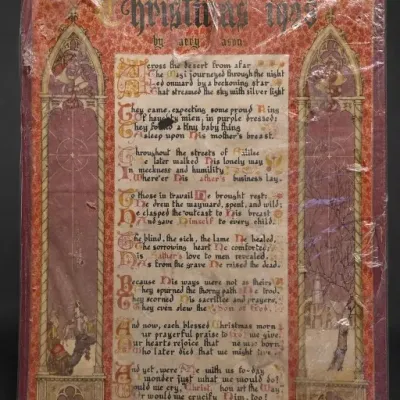 Christmas
by
Across the desert from afar
The Magi journeyed through the night
Led onward by a beckoning star
That streamed the sky with silver light
They came, expecting some proud King
Of haughty mien, in purple dressed;
They found a tiny baby thing
Asleep upon His mother's breast.
Throughout the streets of
He later walked His lonely way
In meekness and humility
Where'er His Father's business lay.
To those in travail He brought rest,
He drew the wayward, spent, and wild;
He clasped the outcast to His breast
And gave Himself to every child.
The blind, the sick, the lame He healed,
The sorrowing heart He comforted;
His Father's love to men revealed,
His from the grave He raised the dead.
Because His ways were not as theirs
They spurned the thorny path He trod,
They scorned His sacrifice and prayers,
They even slew the Son of God.
And now, each blessed Christmas morn
Our prayerful praise to God we give,
Our hearts rejoice that was born
Who later died that we might live
And yet, were He with us to-day
I wonder just what we would do!
Would we cry, Christ, the Way
Or would we crucify Him, too!